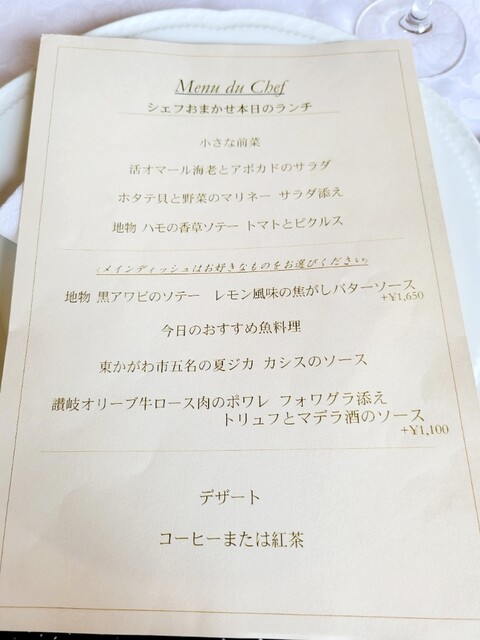 Menu du Chef
シェフおまかせ本日のランチ
小さな前菜
活オマール海老とアボカドのサラダ
ホタテ貝と野菜のマリネー サラダ添え
地物 ハモの香草ソテー トマトとピクルス
〈メインディッシュはお好きなものをお選びください〉
地物 黒アワビのソテー レモン風味の焦がしバターソース
+¥1,650
今日のおすすめ魚料理
東かがわ市五名の夏ジカ カシスのソース
讃岐オリーブ牛ロース肉のポワレ フォワグラ添え
トリュフとマデラ酒のソース
+¥1,100
デザート
コーヒーまたは紅茶